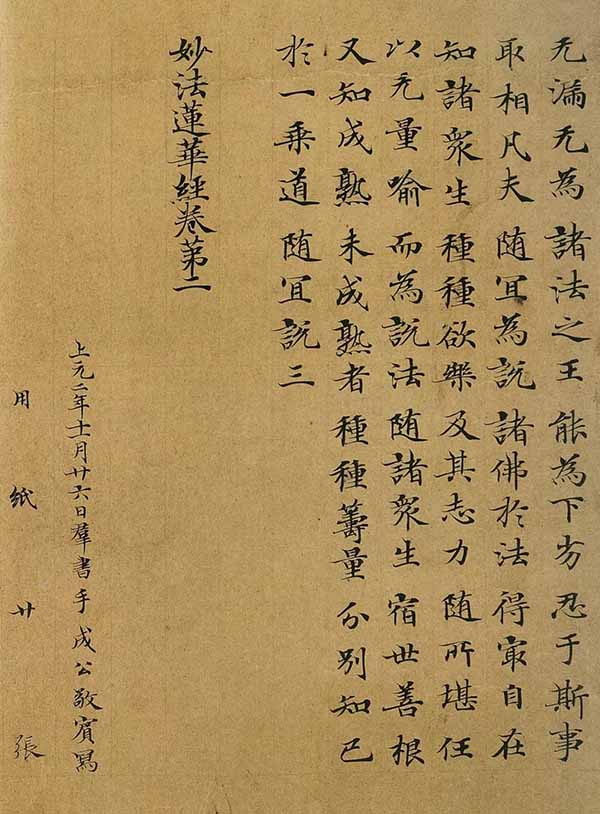 无漏无為 諸法之王 能為下劣 忍于斯事
取相凡夫 随冝為說 諸佛於法 得冣自在
知諸衆生 種種欲樂 及其志力 随所堪任
以无量喻 而為說法 随諸衆生 宿世善根
又知成熟 未成熟者 種種籌量 分别知已
於一乘道 随冝說三
妙法蓮華經卷第二
上元二年十一月廿六日羣書手成公敬賓寫
用紙廿張